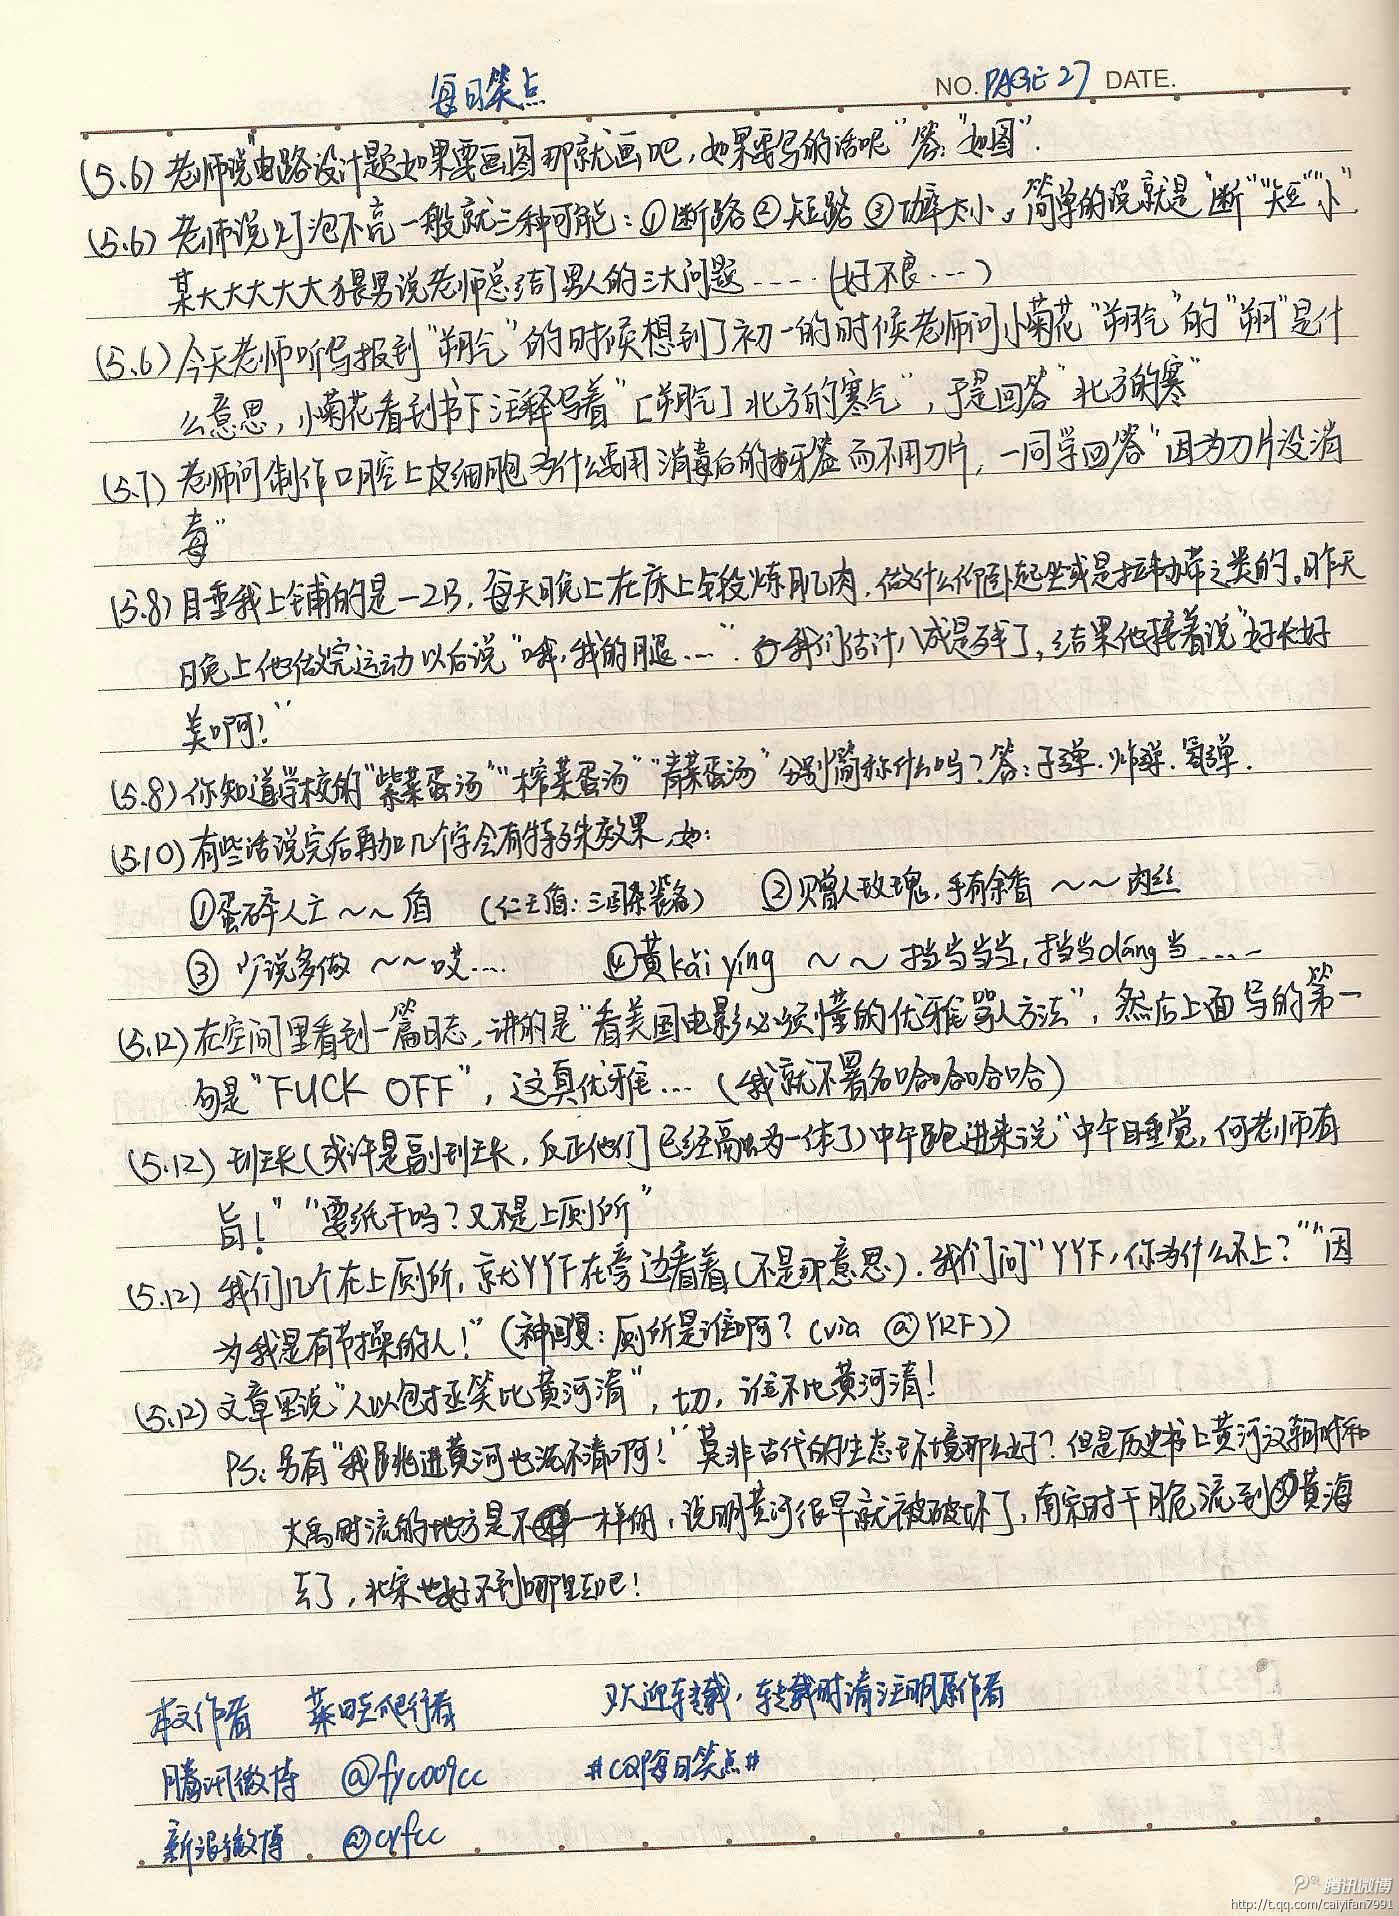 每日笑点
NO. PAGE 27 DATE.
(5.6) 老师说"电路设计题如果要画图那就画吧,如果要写的话呢"答:"如图".
(5.6) 老师说灯泡不亮一般就三种可能:①断路②短路③功率太小。简单的说就是"断""短""小"
某大大大大大猥男说老师总结了男人的三大问题……(好不良……)
(5.6) 今天老师听写报到"朔气"的时候想到了初一的时候老师问小菊花"朔气"的"朔"是什
么意思,小菊花看到书下注释写着"[朔气]北方的寒气",于是回答"北方的寒"
(5.7) 老师问制作口腔上皮细胞为什么要用消毒后的牙签而不用刀片,一同学回答"因为刀片没消
毒"
(5.8) 睡我上铺的是一2B,每天晚上在床上锻炼肌肉,做什么仰卧起坐或是拉韧带之类的。昨天
晚上他做完运动以后说"哦,我的腿……".我们估计八成是残了,结果他接着说"好长好
美啊!"
(5.8) 你知道学校的"紫菜蛋汤""榨菜蛋汤""青菜蛋汤"分别简称什么吗?答:子弹.炸弹.氢弹.
(5.10) 有些话说完后再加几个字会有特殊效果,如:
①蛋碎人亡~~盾 (仁王盾:三国杀装备) ②赠人玫瑰,手有余香~~肉丝
③少说多做~~哎…. ④黄kāi yīng ~~挡当当当,挡当dāng当……
(5.12) 在空间里看到一篇日志,讲的是"看美国电影必须懂的优雅骂人方法",然后上面写的第一
句是"FUCK OFF",这真优雅…(我就不署名哈哈哈哈)
(5.12) 班长(或许是副班长,反正他们已经融为一体了)中午跑进来说"中午睡觉,何老师有
旨!""要纸干吗?又不是上厕所"
(5.12) 我们几个在上厕所,就YYF在旁边看着(不是那意思).我们问"YYF,你为什么不上?""因
为我是有节操的人!"(神回复:厕所是谁啊?(via @YRF))
(5.12) 文章里说"人以包拯笑比黄河清",切,谁不比黄河清!
PS:另有"我跳进黄河也洗不清啊!"莫非古代的生态环境那么好?但是历史书上黄河汉朝时和
大禹时流的地方是不一样的,说明黄河很早就被破坏了,南宋时干脆流到黄海
去了,北宋也好不到哪里去吧!
本文作者 菜晓爬行者 欢迎转载,转载时请注明原作者
腾讯微博 @fyc009cc #CQ每日笑点#
新浪微博 @cyfcc
腾讯微博
http://t.qq.com/caiyifan7991